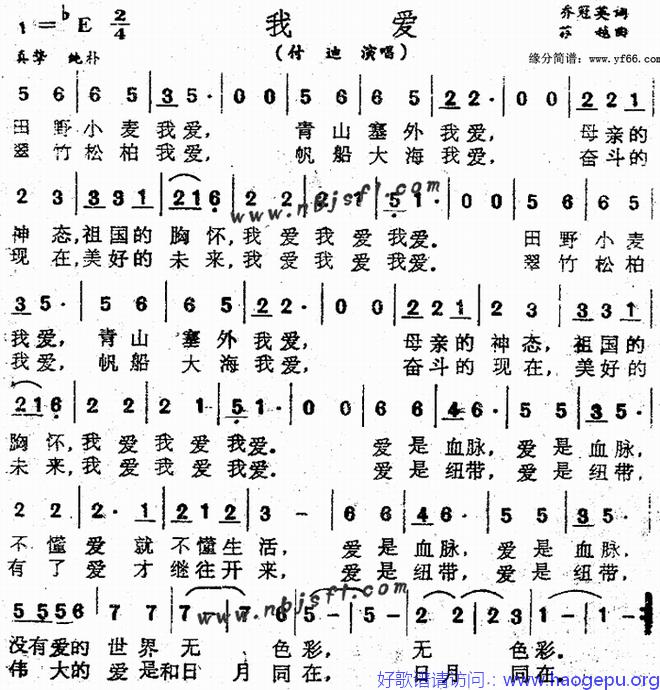 1=♭E 2/4 我 爱 乔冠英词
越曲
真挚 纯朴 (付 迪 演唱) 缘分简谱:www.yf66.com
5 6 | 6 5 | 3 5· | 0 0 | 5 6 | 6 5 | 2 2· | 0 0 | 2 2 1 |
田野小麦我爱, 青山塞外我爱, 母亲的
翠竹松柏我爱, 帆船大海我爱, 奋斗的
2 3 | 3 3 1 | 2 1 6 | 2 2 | 2 1 | 5 1· | 0 0 | 5 6 | 6 5 |
www.nbjsft.com
神态,祖国的胸怀,我爱我爱我爱. 田野小麦
现在,美好的未来,我爱我爱我爱. 翠竹松柏
3 5· | 5 6 | 6 5 | 2 2· | 0 0 | 2 2 1 | 2 3 | 3 3 1 |
我爱, 青山塞外我爱, 母亲的神态, 祖国的
我爱, 帆船大海我爱, 奋斗的现在, 美好的
2 1 6 | 2 2 | 2 1 | 5 1· | 0 0 | 6 6 | 4 6· | 5 5 | 3 5· |
胸怀,我爱我爱我爱. 爱是血脉, 爱是血脉,
未来,我爱我爱我爱. 爱是纽带, 爱是纽带,
2 2 | 2· 1 | 2 1 2 | 3 - | 6 6 | 4 6· | 5 5 | 3 5· |
不懂爱就不懂生活, 爱是血脉, 爱是血脉,
有了爱才继往开来, 爱是纽带, 爱是纽带,
5 5 5 6 | 7 7 | 7 7 | 7 6 | 5 - | 5 - | 2 2 | 2 3 | 1 - | 1 - |
www.nbjsft.com
没有爱的世界无 色彩, 无 色彩.
伟大的爱是和日月同在, 日月同在.
好歌谱请访问:www.haogepu.org